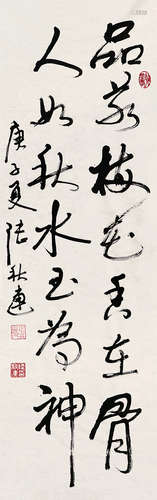 品若梅花香在骨
人如秋水玉为神
庚子夏 张秋莲